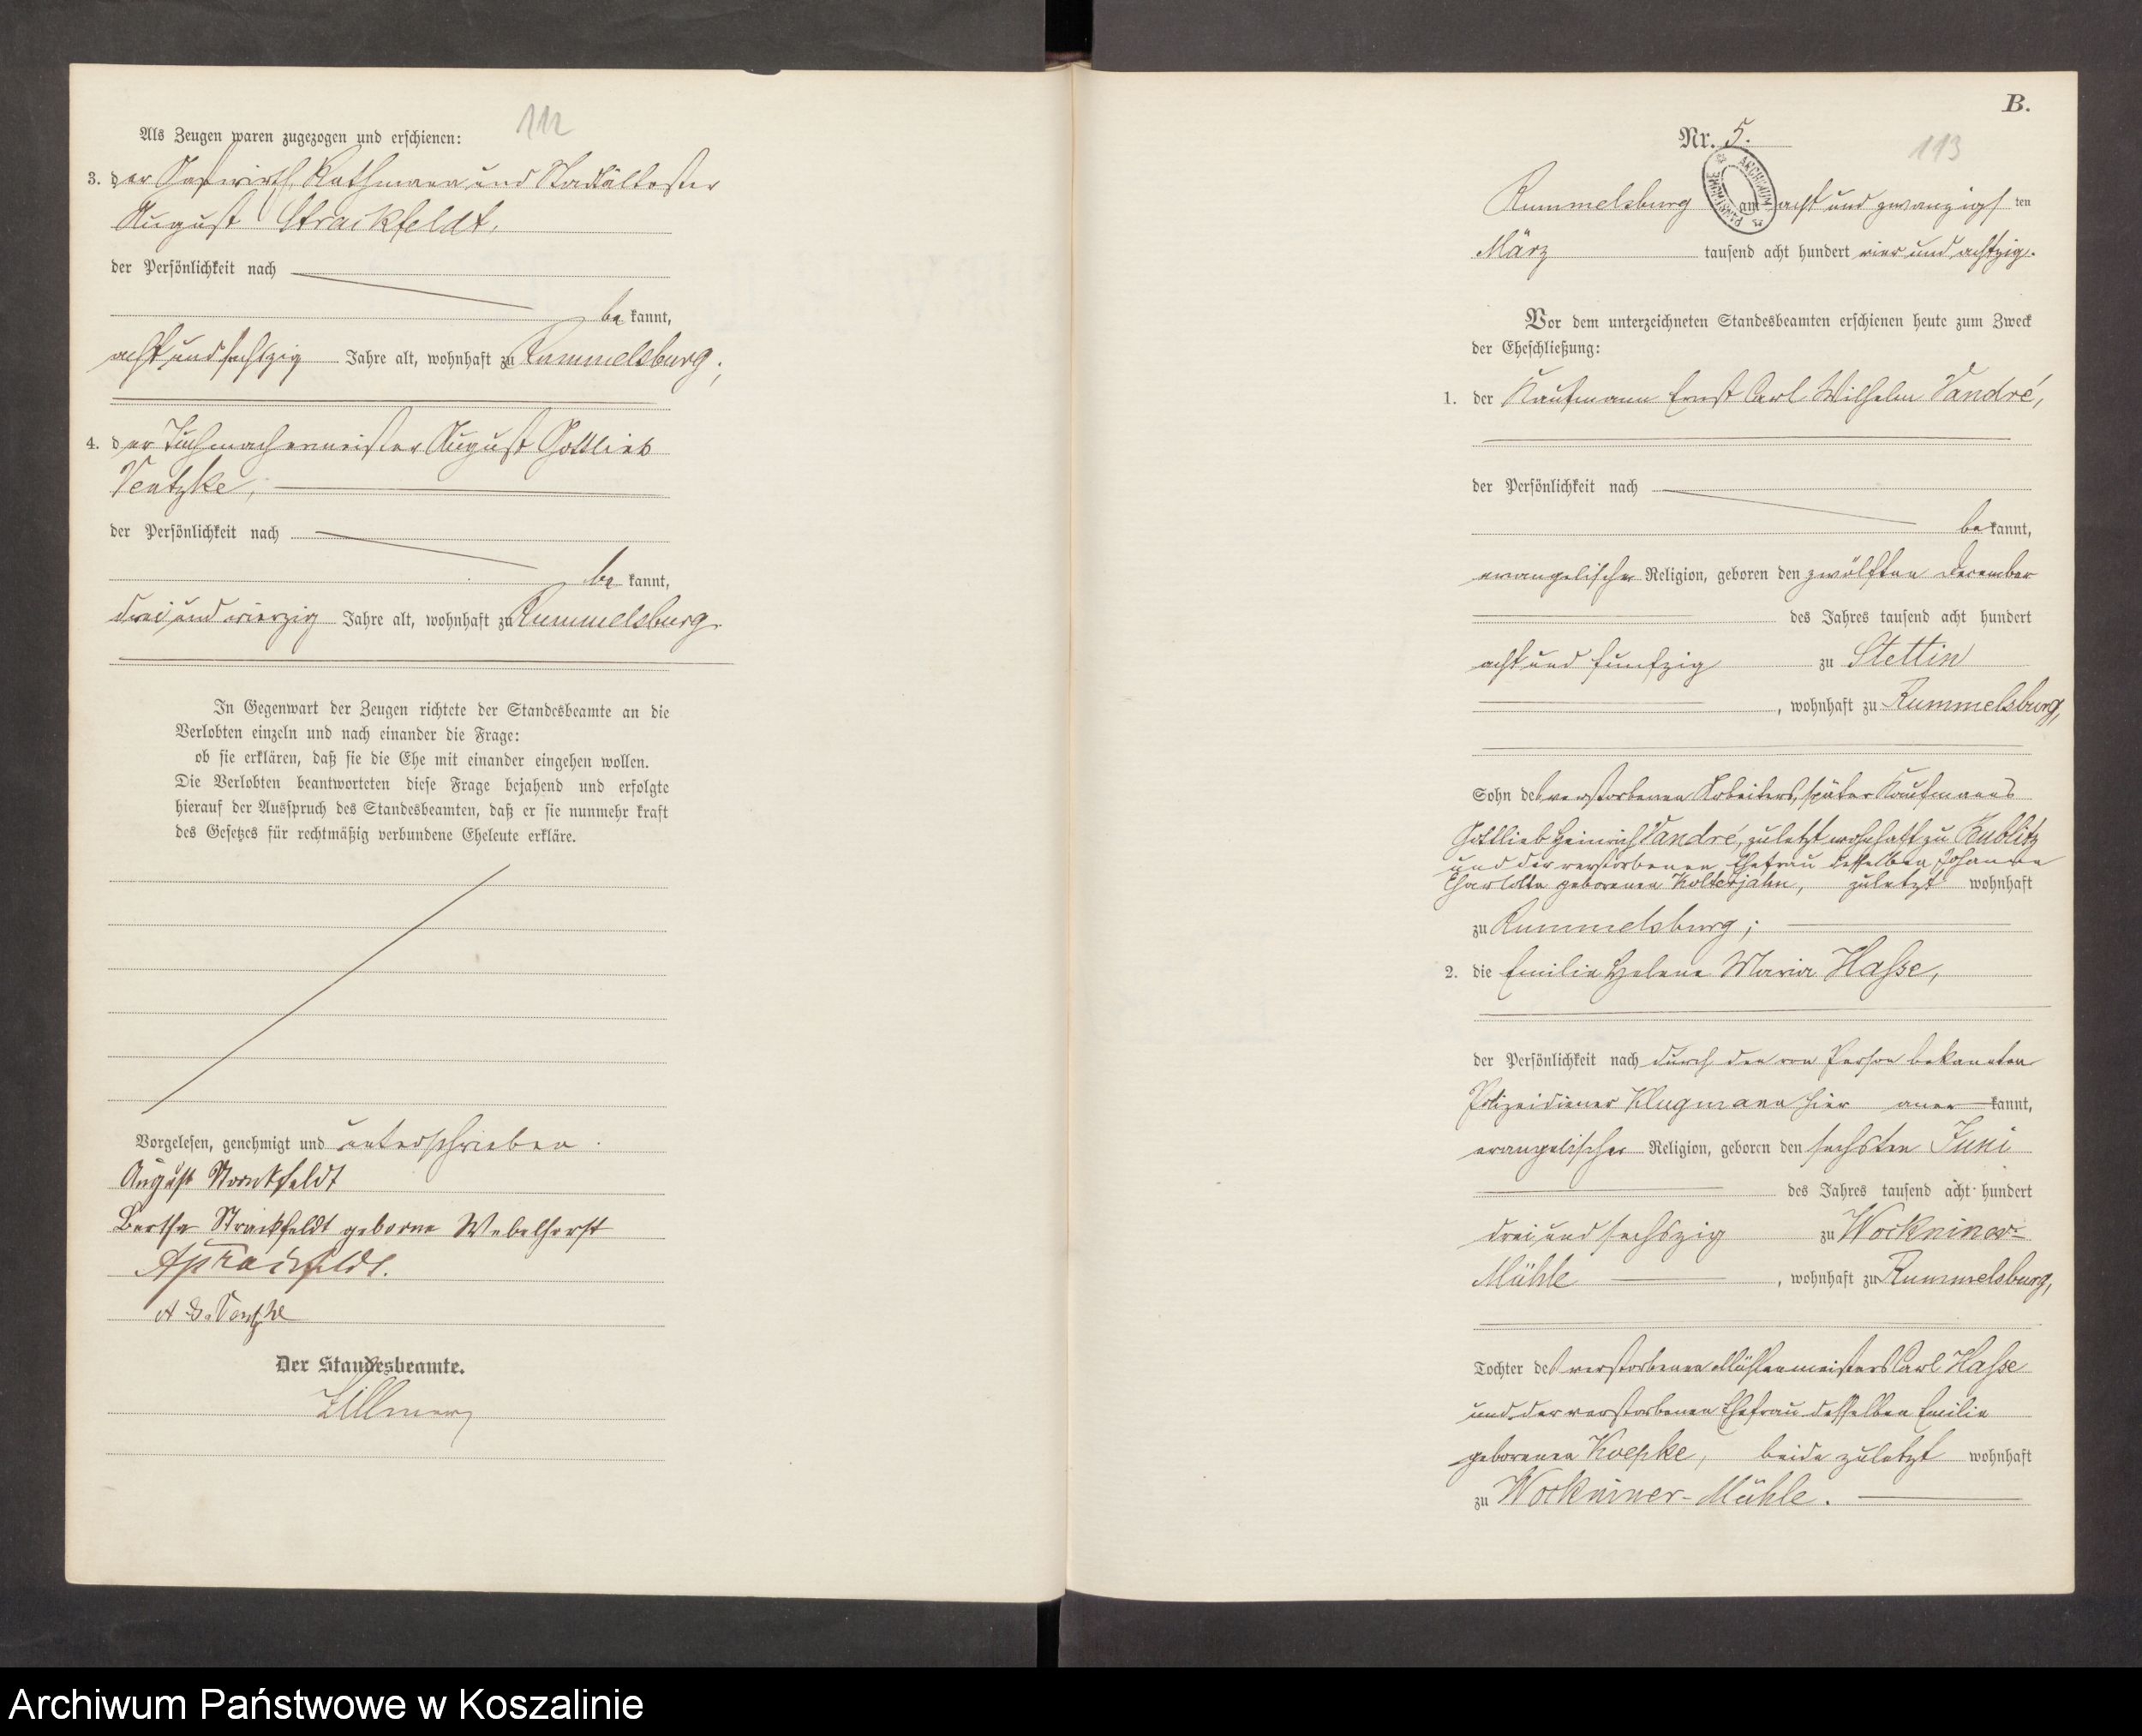 112
Als Zeugen waren zugezogen und erschienen:
3. der Gastwirth, Rathmann und Stadtältester
August Strackfeldt,
der Persönlichkeit nach
be kannt,
acht und sechszig Jahre alt, wohnhaft zu Rummelsburg;
4. der Tuchmachermeister August Gottlieb
Ventzke,
der Persönlichkeit nach
be kannt,
drei und vierzig Jahre alt, wohnhaft zu Rummelsburg.
In Gegenwart der Zeugen richtete der Standesbeamte an die
Verlobten einzeln und nach einander die Frage:
ob sie erklären, daß sie die Ehe mit einander eingehen wollen.
Die Verlobten beantworteten diese Frage bejahend und erfolgte
hierauf der Ausspruch des Standesbeamten, daß er sie nunmehr kraft
des Gesetzes für rechtmäßig verbundene Eheleute erkläre.
Vorgelesen, genehmigt und unterschrieben.
August Strackfeldt
Bertha Strackfeldt geborne Webelhorst
A Strackfeldt.
A. G. Ventzke
Der Standesbeamte.
B.
Nr. 5.
113
ARCHIWUM PAŃSTWOWE
Rummelsburg am acht und zwanzigsten
März tausend acht hundert vier und achtzig.
Vor dem unterzeichneten Standesbeamten erschienen heute zum Zweck
der Eheschließung:
1. der Kaufmann Ernst Carl Wilhelm Vandré,
der Persönlichkeit nach
be kannt,
evangelischer Religion, geboren den zwölften December
des Jahres tausend acht hundert
acht und fünfzig zu Stettin
, wohnhaft zu Rummelsburg,
Sohn des verstorbenen Arbeiters, später Kaufmanns
Gottlieb Heinrich Vandré, zuletzt wohnhaft zu Bublitz
und der verstorbenen Ehefrau desselben Johanne
Charlotte geborenen Kolterjahn, zuletzt wohnhaft
zu Rummelsburg;
2. die Emilie Helene Maria Hasse,
der Persönlichkeit nach durch den von Person bekannten
Polizeidiener Klugmann hier aner kannt,
evangelischer Religion, geboren den sechsten Juni
des Jahres tausend acht hundert
drei und sechszig zu Wockniner-
Mühle, wohnhaft zu Rummelsburg,
Tochter des verstorbenen Mühlenmeisters Carl Hasse
und der verstorbenen Ehefrau desselben Emilie
geborenen Koepke, beide zuletzt wohnhaft
zu Wockniner-Mühle.
Archiwum Państwowe w Koszalinie